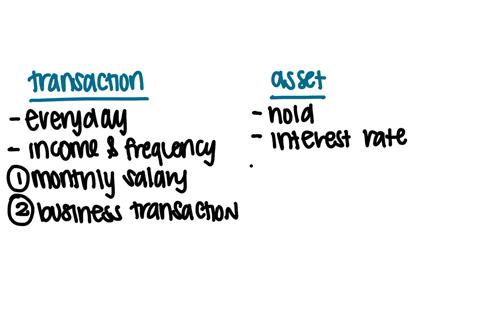 transaction
- everyday
- income & frequency
① monthly salary
② business transaction
asset
- hold
- interest rate